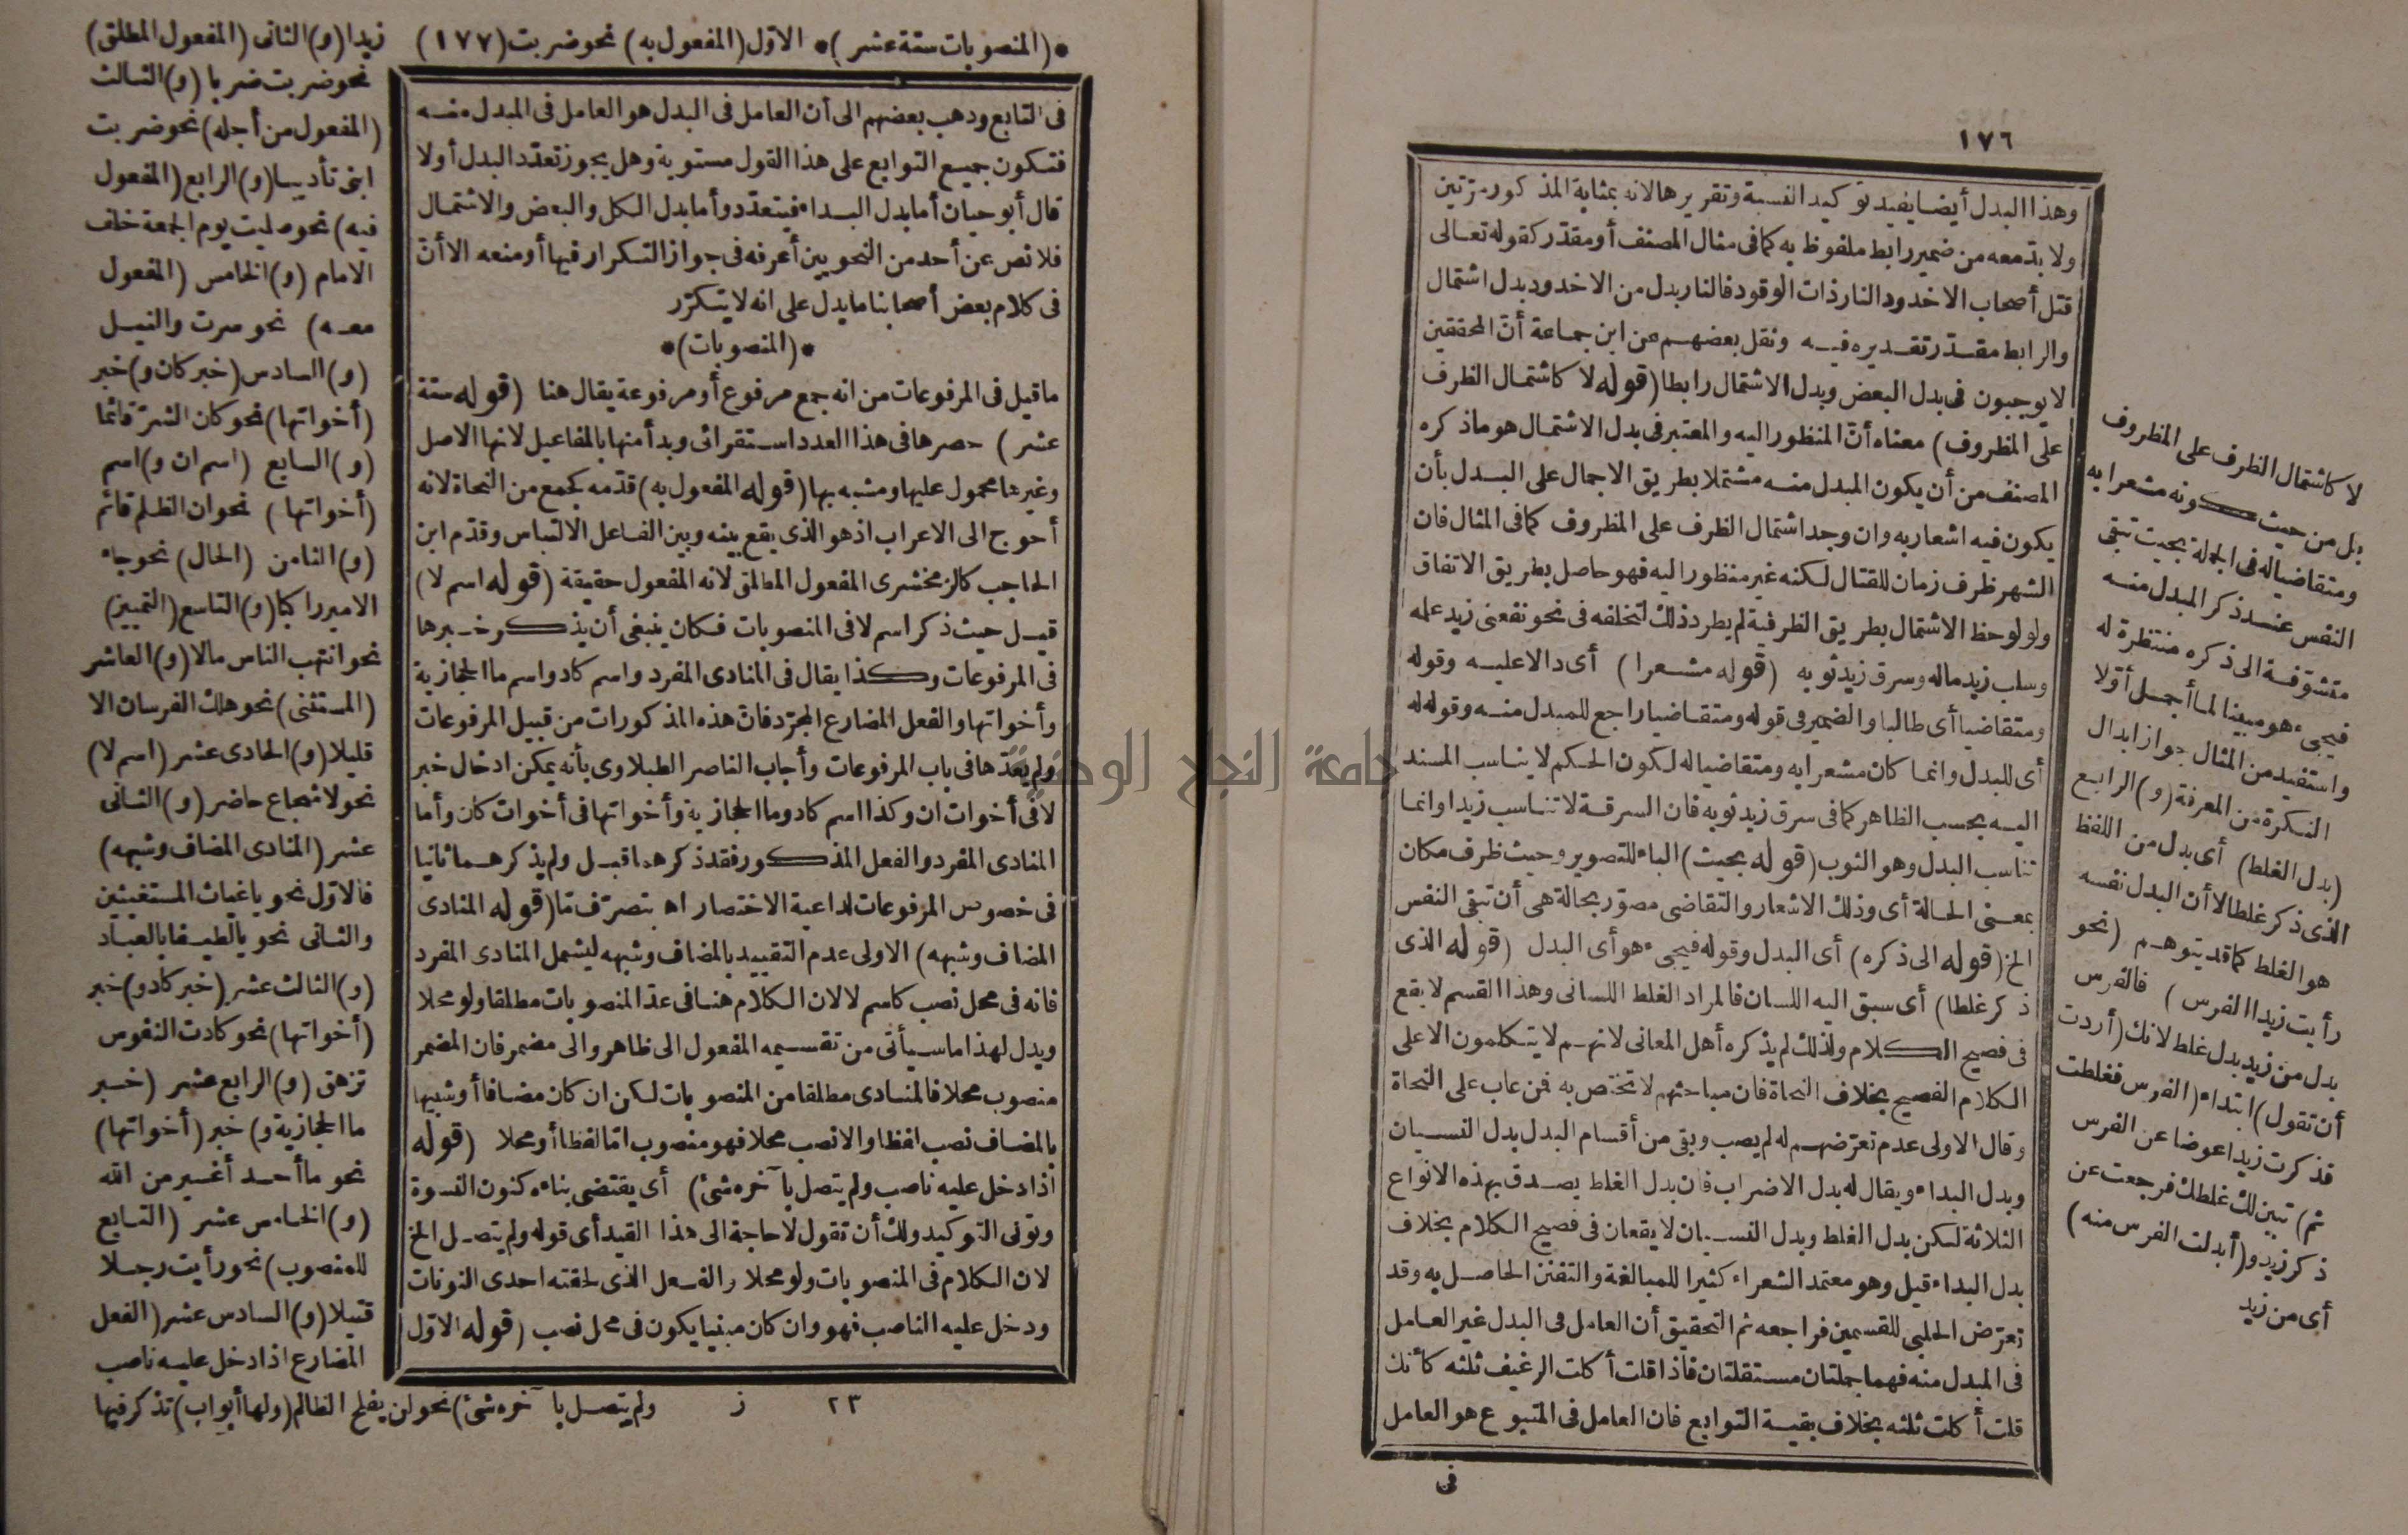 ١٧٦
وهذا البدل أيضا يفيد توكيد النسبة وتقريرها لانه بمثابة المذكور مرتين
ولا بدّ معه من ضمير رابط ملفوظ به كما فى مثال المصنف أو مقدّر كقوله تعالى
قتل أصحاب الاخدود النار ذات الوقود فالنار بدل من الاخدود بدل اشتمال
والرابط مقدّر تقديره فيه ونقل بعضهم عن ابن جماعة أنّ المحققين
لا يوجبون فى بدل البعض وبدل الاشتمال رابطا (قوله لا كاشتمال الظرف
على المظروف) معناه أنّ المنظور اليه والمعتبر فى بدل الاشتمال هو ما ذكره
المصنف من أن يكون المبدل منه مشتملا بطريق الاجمال على البدل بأن
يكون فيه اشعار به وان وجد اشتمال الظرف على المظروف كما فى المثال فان
الشهر ظرف زمان للقتال لكنه غير منظور اليه فهو حاصل بطريق الاتفاق
ولو لوحظ الاشتمال بطريق الظرفية لم يطرد ذلك لتخلفه فى نحو نفعنى زيد علمه
وسلب زيد ماله وسرق زيد ثوبه (قوله مشعرا) أى دالا عليه وقوله
ومتقاضيا أى طالبا والضمير فى قوله ومتقاضيا راجع للمبدل منه وقوله له
أى للبدل وانما كان مشعرا به ومتقاضيا له لكون الحكم لا يناسب المسند
اليه بحسب الظاهر كما فى سرق زيد ثوبه فان السرقة لا تناسب زيدا وانما
تناسب البدل وهو الثوب (قوله بحيث) الباء للتصوير وحيث ظرف مكان
بمعنى الحالة أى وذلك الاشعار والتقاضى مصوّر بحالة هى أن تبقى النفس
الخ (قوله الى ذكره) أى البدل وقوله فيجىء هو أى البدل (قوله الذى
ذكر غلطا) أى سبق اليه اللسان فالمراد الغلط اللسانى وهذا القسم لا يقع
فى فصيح الكلام ولذلك لم يذكره أهل المعانى لانهم لا يتكلمون الا على
الكلام الفصيح بخلاف النحاة فان مباحثهم لا تختص به فمن عاب على النحاة
وقال الاولى عدم تعرّضهم له لم يصب وبقى من أقسام البدل بدل النسيان
وبدل البداء ويقال له بدل الاضراب فان بدل الغلط يصدق بهذه الانواع
الثلاثة لكن بدل الغلط وبدل النسيان لا يقعان فى فصيح الكلام بخلاف
بدل البداء قيل وهو معتمد الشعراء كثيرا للمبالغة والتفنن الحاصل به وقد
تعرّض الحلبى للقسمين فراجعه ثم التحقيق أن العامل فى البدل غير العامل
فى المبدل منه فهما جملتان مستقلتان فاذا قلت أكلت الرغيف ثلثه كأنك
قلت أكلت ثلثه بخلاف بقية التوابع فان العامل فى المتبوع هو العامل
فى
لا كاشتمال الظرف على المظروف
بل من حيث كونه مشعرا به
ومتقاضيا له فى الجملة بحيث تبقى
النفس عند ذكر المبدل منه
متشوّفة الى ذكره منتظرة له
فيجىء هو مبينا لما أجمل أوّلا
واستفيد من المثال جواز ابدال
النكرة من المعرفة (و) الرابع
(بدل الغلط) أى بدل من اللفظ
الذى ذكر غلطا لا أن البدل نفسه
هو الغلط كما قد يتوهم (نحو
رأيت زيدا الفرس) فالفرس
بدل من زيد بدل غلط لانك (أردت
أن تقول) ابتداء (الفرس فغلطت
فذكرت زيدا عوضا عن الفرس
ثم) تبين لك غلطك فرجعت عن
ذكر زيد و(أبدلت الفرس منه)
أى من زيد
*(المنصوبات ستة عشر)* الاوّل (المفعول به) نحو ضربت (١٧٧)
فى التابع وذهب بعضهم الى أن العامل فى البدل هو العامل فى المبدل منه
فتكون جميع التوابع على هذا القول مستوية وهل يجوز تعدّد البدل أو لا
قال أبو حيان أما بدل البداء فيتعدّد وأما بدل الكل والبعض والاشتمال
فلا نص عن أحد من النحويين أعرفه فى جواز التكرار فيها أو منعه الا أنّ
فى كلام بعض أصحابنا ما يدل على انه لا يتكرّر
*(المنصوبات)*
ما قيل فى المرفوعات من انه جمع مرفوع أو مرفوعة يقال هنا (قوله ستة
عشر) حصرها فى هذا العدد استقرائى وبدأ منها بالمفاعيل لانها الاصل
وغيرها محمول عليها ومشبه بها (قوله المفعول به) قدّمه كجمع من النحاة لانه
أحوج الى الاعراب اذ هو الذى يقع بينه وبين الفاعل الالتباس وقدّم ابن
الحاجب كالزمخشرى المفعول المطلق لانه المفعول حقيقة (قوله اسم لا)
قيل حيث ذكر اسم لا فى المنصوبات فكان ينبغى أن يذكر خبرها
فى المرفوعات وكذا يقال فى المنادى المفرد واسم كاد واسم ما الحجازية
وأخواتها والفعل المضارع المجرّد فان هذه المذكورات من قبيل المرفوعات
ولم يعدّها فى باب المرفوعات وأجاب الناصر الطبلاوى بأنه يمكن ادخال خبر
لا فى أخوات ان وكذا اسم كاد وما الحجازية وأخواتها فى أخوات كان وأما
المنادى المفرد والفعل المذكور فقد ذكرهما قبل ولم يذكرهما ثانيا
فى خصوص المرفوعات لداعية الاختصار اه بتصرّف تا (قوله المنادى
المضاف وشبهه) الاولى عدم التقييد بالمضاف وشبهه ليشمل المنادى المفرد
فانه فى محل نصب كاسم لا لان الكلام هنا فى عدّ المنصوبات مطلقا ولو محلا
ويدل لهذا ما سيأتى من تقسيمه المفعول الى ظاهر والى مضمر فان المضمر
منصوب محلا فالمنادى مطلقا من المنصوبات لكن ان كان مضافا أو شبيها
بالمضاف نصب لفظا والا نصب محلا فهو منصوب امّا لفظا أو محلا (قوله
اذا دخل عليه ناصب ولم يتصل بآخره شئ) أى يقتضى بناءه كنون النسوة
ونونى التوكيد ولك أن تقول لا حاجة الى هذا القيد أى قوله ولم يتصل الخ
لان الكلام فى المنصوبات ولو محلا والفعل الذى لحقته احدى النونات
ودخل عليه الناصب فهو وان كان مبنيا يكون فى محل نصب (قوله الاوّل
زيدا (و) الثانى (المفعول المطلق)
نحو ضربت ضربا (و) الثالث
(المفعول من أجله) نحو ضربت
ابنى تأديبا (و) الرابع (المفعول
فيه) نحو صليت يوم الجمعة خلف
الامام (و) الخامس (المفعول
معه) نحو سرت والنيل
(و) السادس (خبر كان و) خبر
(أخواتها) نحو كان الشرّ قائما
(و) السابع (اسم ان و) اسم
(أخواتها) نحو ان الظلم قائم
(و) الثامن (الحال) نحو جاء
الامير راكبا (و) التاسع (التمييز)
نحو انتهب الناس مالا (و) العاشر
(المستثنى) نحو هلك الفرسان الا
قليلا (و) الحادى عشر (اسم لا)
نحو لا شجاع حاضر (و) الثانى
عشر (المنادى المضاف وشبهه)
فالاوّل نحو يا غياث المستغيثين
والثانى نحو يا لطيفا بالعباد
(و) الثالث عشر (خبر كاد و) خبر
(أخواتها) نحو كادت النفوس
تزهق (و) الرابع عشر (خبر
ما الحجازية و) خبر (أخواتها)
نحو ما أحد أغير من الله
(و) الخامس عشر (التابع
للمنصوب) نحو رأيت رجلا
قتيلا (و) السادس عشر (الفعل
المضارع اذا دخل عليه ناصب
ولم يتصل بآخره شئ) نحو لن يفلح الظالم (ولها أبواب) تذكر فيها
٢٣ ز
جامعة النجاح الوطنية